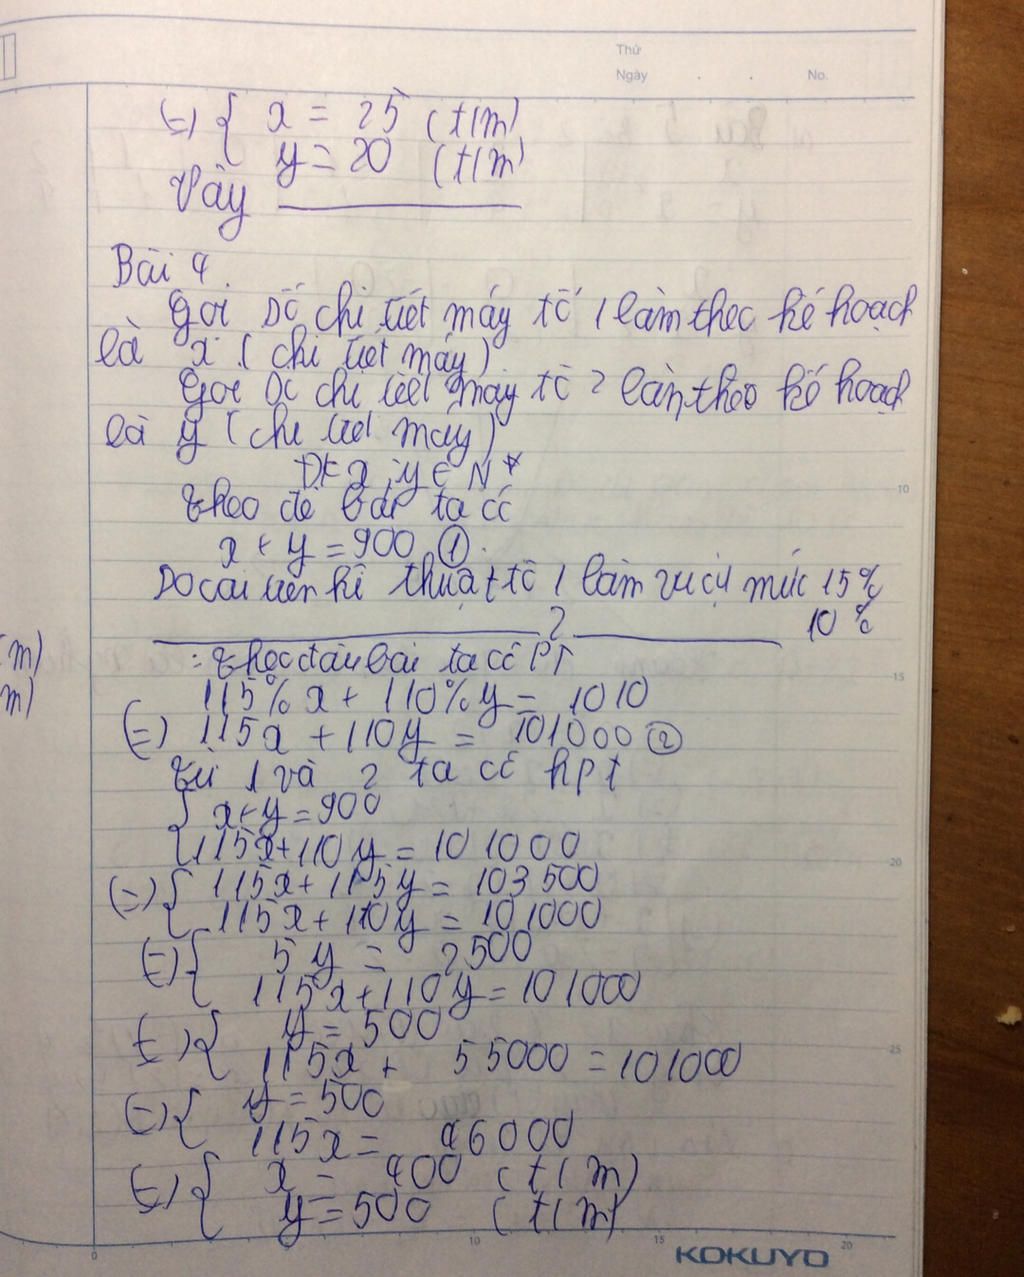 Thứ
Ngày . . No.
(=) { x = 25 (t/m)
y = 20 (t/m)
Vậy
Bài 4.
Gọi số chi tiết máy tổ 1 làm theo kế hoạch
là x (chi tiết máy)
Gọi số chi tiết máy tổ 2 làm theo kế hoạch
là y (chi tiết máy)
ĐK x, y ∈ N*
Theo đề bài ta có
x + y = 900 ①.
Do cải tiến kĩ thuật tổ 1 làm vượt mức 15%
2 10%
: Theo đầu bài ta có PT
m)
115% x + 110% y = 1010
m)
(=) 115x + 110y = 101000 ②
Từ 1 và 2 ta có hpt
{ x + y = 900
115x + 110y = 101000
(=) { 115x + 115y = 103500
115x + 110y = 101000
(=) { 5y = 2500
115x + 110y = 101000
(=) { y = 500
115x + 55000 = 101000
(=) { y = 500
115x = 46000
(=) { x = 400 (t/m)
y = 500 (t/m)
10
15
20
25
0 10 15 20
KOKUYO